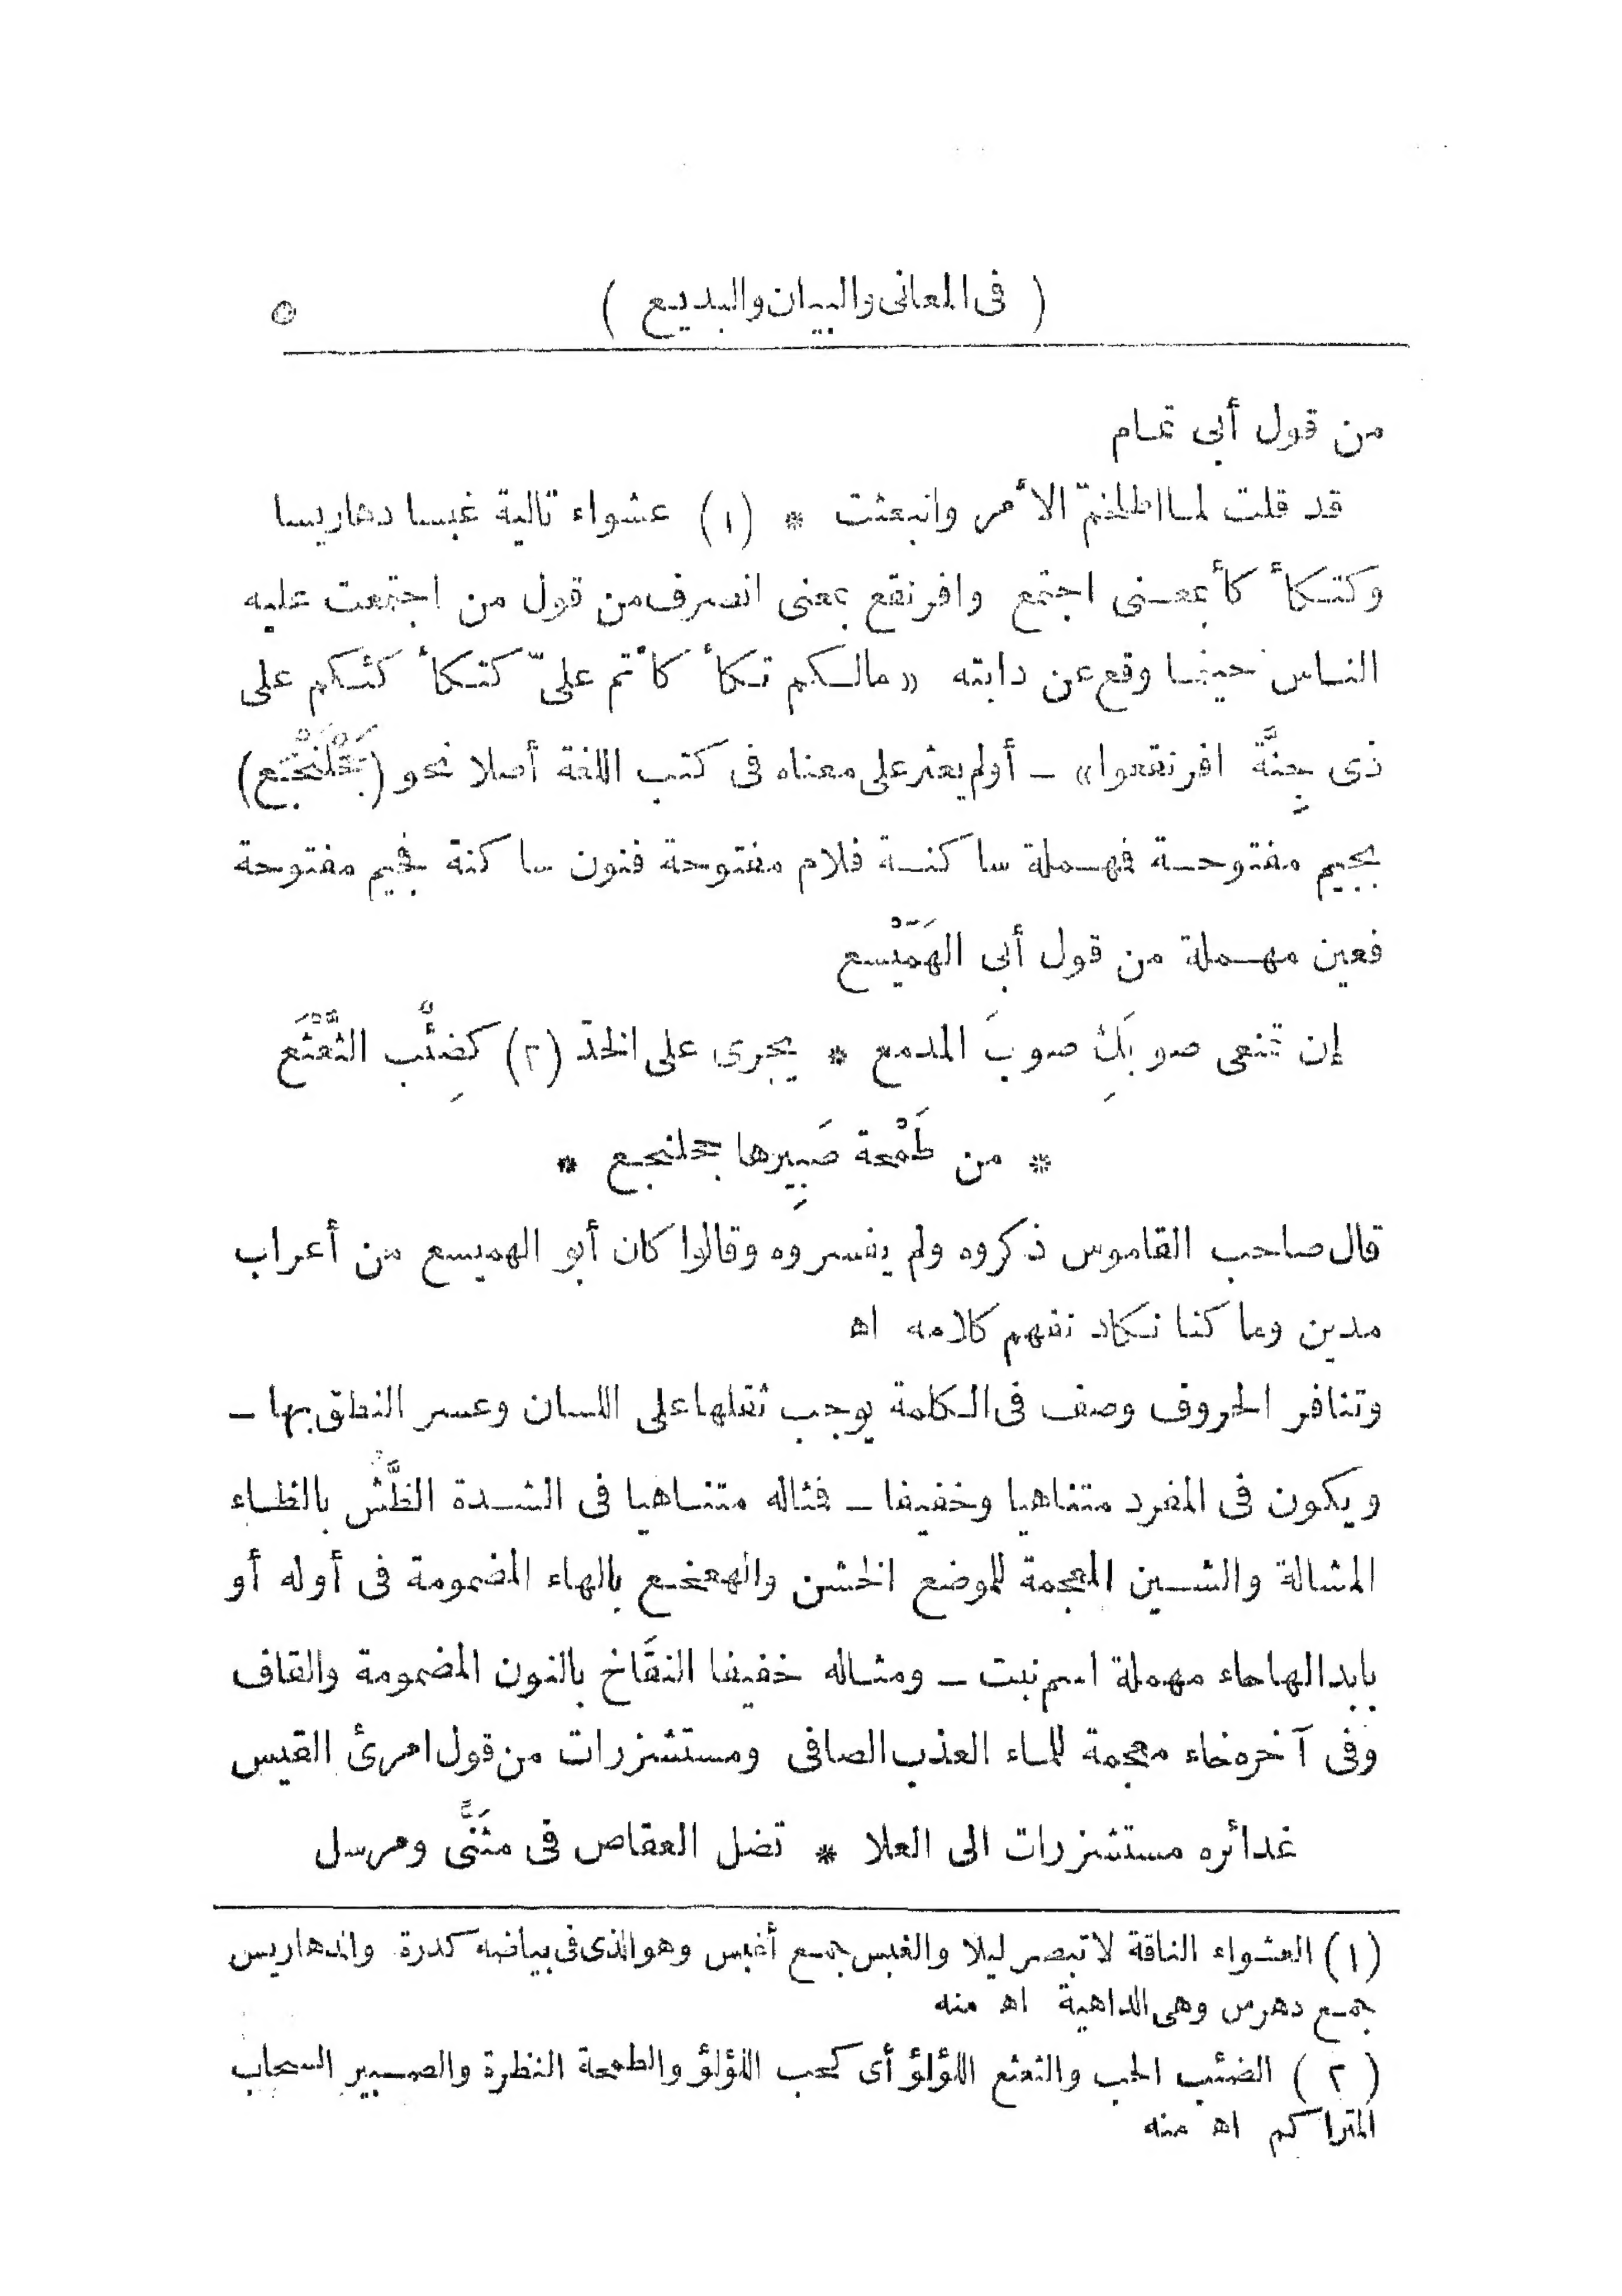 ( فى المعانى والبيان والبديع ) ٥
من قول أبى تمام
قد قلت لما اطلخمّ الأمر وانبعثت * (١) عشواء تالية غبسا دهاريسا
وكتكأ كأ بمعنى اجتمع وافرنقع بمعنى انصرف من قول من اجتمعت عليه
الناس حينما وقع عن دابته «مالكم تكأ كأتم علىّ كتكأ كئكم على
ذى جِنَّة افرنقعوا» – أولم يعثر على معناه فى كتب اللغة أصلا نحو (جَحْلَنْجَع)
بجيم مفتوحة فهملة ساكنة فلام مفتوحة فنون ساكنة فجيم مفتوحة
فعين مهملة من قول أبى الهَمَيْسع
إن تمنعى صوبَكِ صوبَ المدمع * يجرى على الخدّ (٢) كضِئْب الثَّعْثَع
* من طَمْحة صَبِيرها جحلنجع *
قال صاحب القاموس ذكروه ولم يفسروه وقالوا كان أبو الهميسع من أعراب
مدين وما كنا نكاد نفهم كلامه اه
وتنافر الحروف وصف فى الكلمة يوجب ثقلها على اللسان وعسر النطق بها –
ويكون فى المفرد متناهيا وخفيفا – فثاله متناهيا فى الشدة الظَّشّ بالظاء
المشالة والشين المعجمة للموضع الخشن والهعخع بالهاء المضمومة فى أوله أو
بابدالها حاء مهملة اسم نبت – ومثاله خفيفا النقَاخ بالنون المضمومة والقاف
وفى آخره خاء معجمة للماء العذب الصافى ومستشزرات من قول امرئ القيس
غدائره مستشزرات الى العلا * تضل العقاص فى مثنًّى ومرسل
(١) العشواء الناقة لا تبصر ليلا والغبس جمع أغبس وهو الذى فى بياضه كدرة والدهاريس
جمع دهرس وهى الداهية اه منه
(٢) الضئب الحب والثعثع اللؤلؤ أى كحب اللؤلؤ والطمحة النظرة والصبير السحاب
المتراكم اه منه